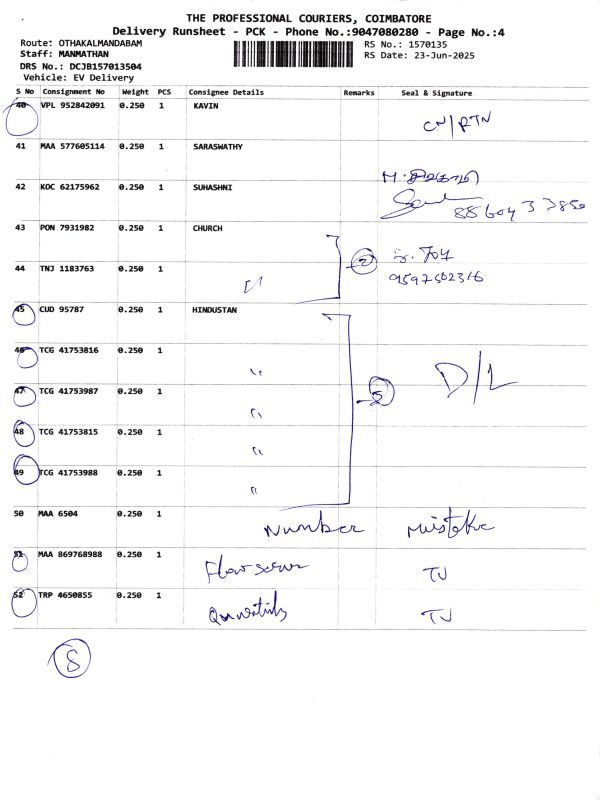 THE PROFESSIONAL COURIERS, COIMBATORE
Delivery Runsheet - PCK - Phone No.:9047080280 - Page No.:4
Route: OTHAKALMANDABAM
RS No.: 1570135
Staff: MANMATHAN
RS Date: 23-Jun-2025
DRS No.: DCJB157013504
Vehicle: EV Delivery
S No Consignment No Weight PCS Consignee Details Remarks Seal & Signature
40 VPL 952842091 0.250 1 KAVIN CN/RTN
41 MAA 577605114 0.250 1 SARASWATHY
42 KOC 62175962 0.250 1 SUHASHNI
43 PON 7931982 0.250 1 CHURCH
44 TNJ 1183763 0.250 1 " 2 9597502316
45 CUD 95787 0.250 1 HINDUSTAN
46 TCG 41753816 0.250 1 "
47 TCG 41753987 0.250 1 " 5 D/L
48 TCG 41753815 0.250 1 "
49 TCG 41753988 0.250 1 "
50 MAA 6504 0.250 1 Number Mistake
51 MAA 869768988 0.250 1 TJ
52 TRP 4650855 0.250 1 TJ
8